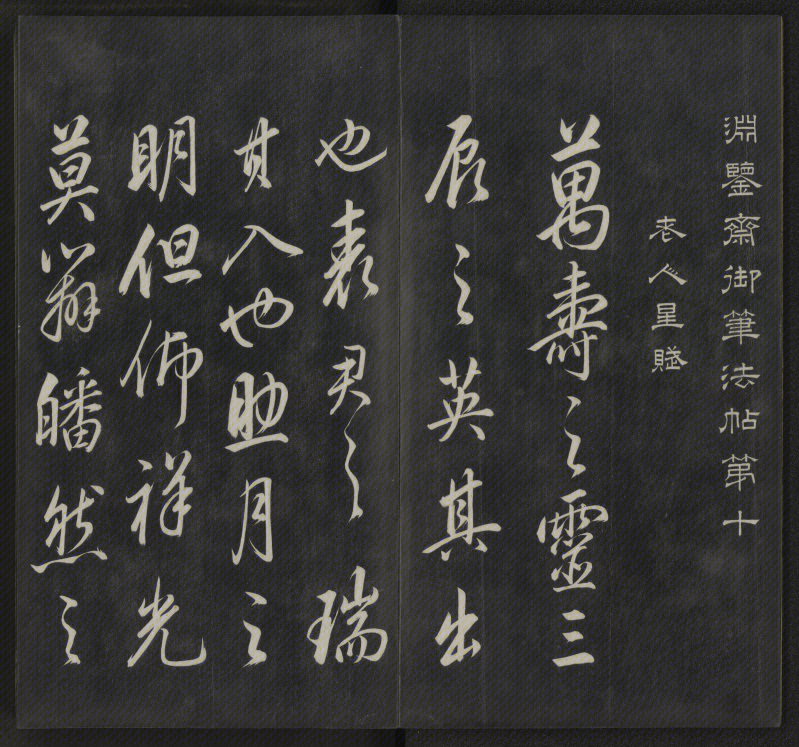 淵鑒齋御筆法帖第十
老人星賦
萬壽之靈三
辰之英其出
也表君之瑞
其入也助月之
明但佈祥光
莫辨皤然之